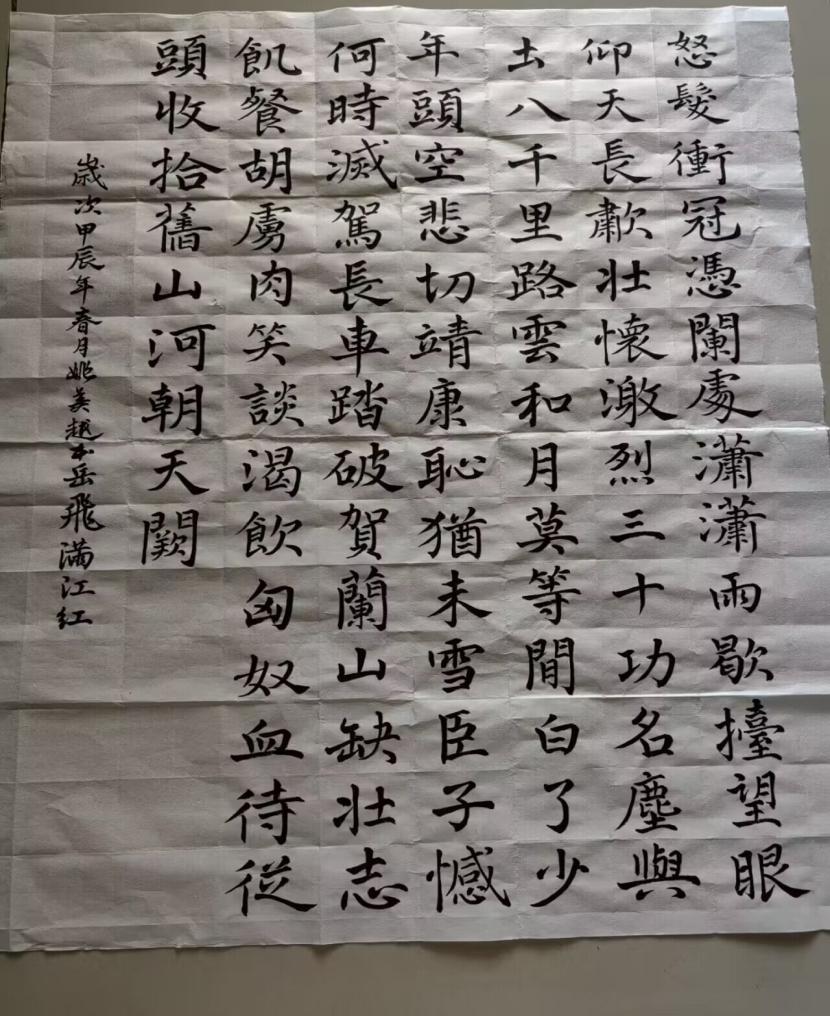 怒髮衝冠憑闌處瀟瀟雨歇擡望眼
仰天長歗壯懷激烈三十功名塵與
土八千里路雲和月莫等閒白了少
年頭空悲切靖康恥猶未雪臣子憾
何時滅駕長車踏破賀蘭山缺壯志
飢餐胡虜肉笑談渴飲匈奴血待從
頭收拾舊山河朝天闕
歲次甲辰年春月姚美越书岳飛滿江红